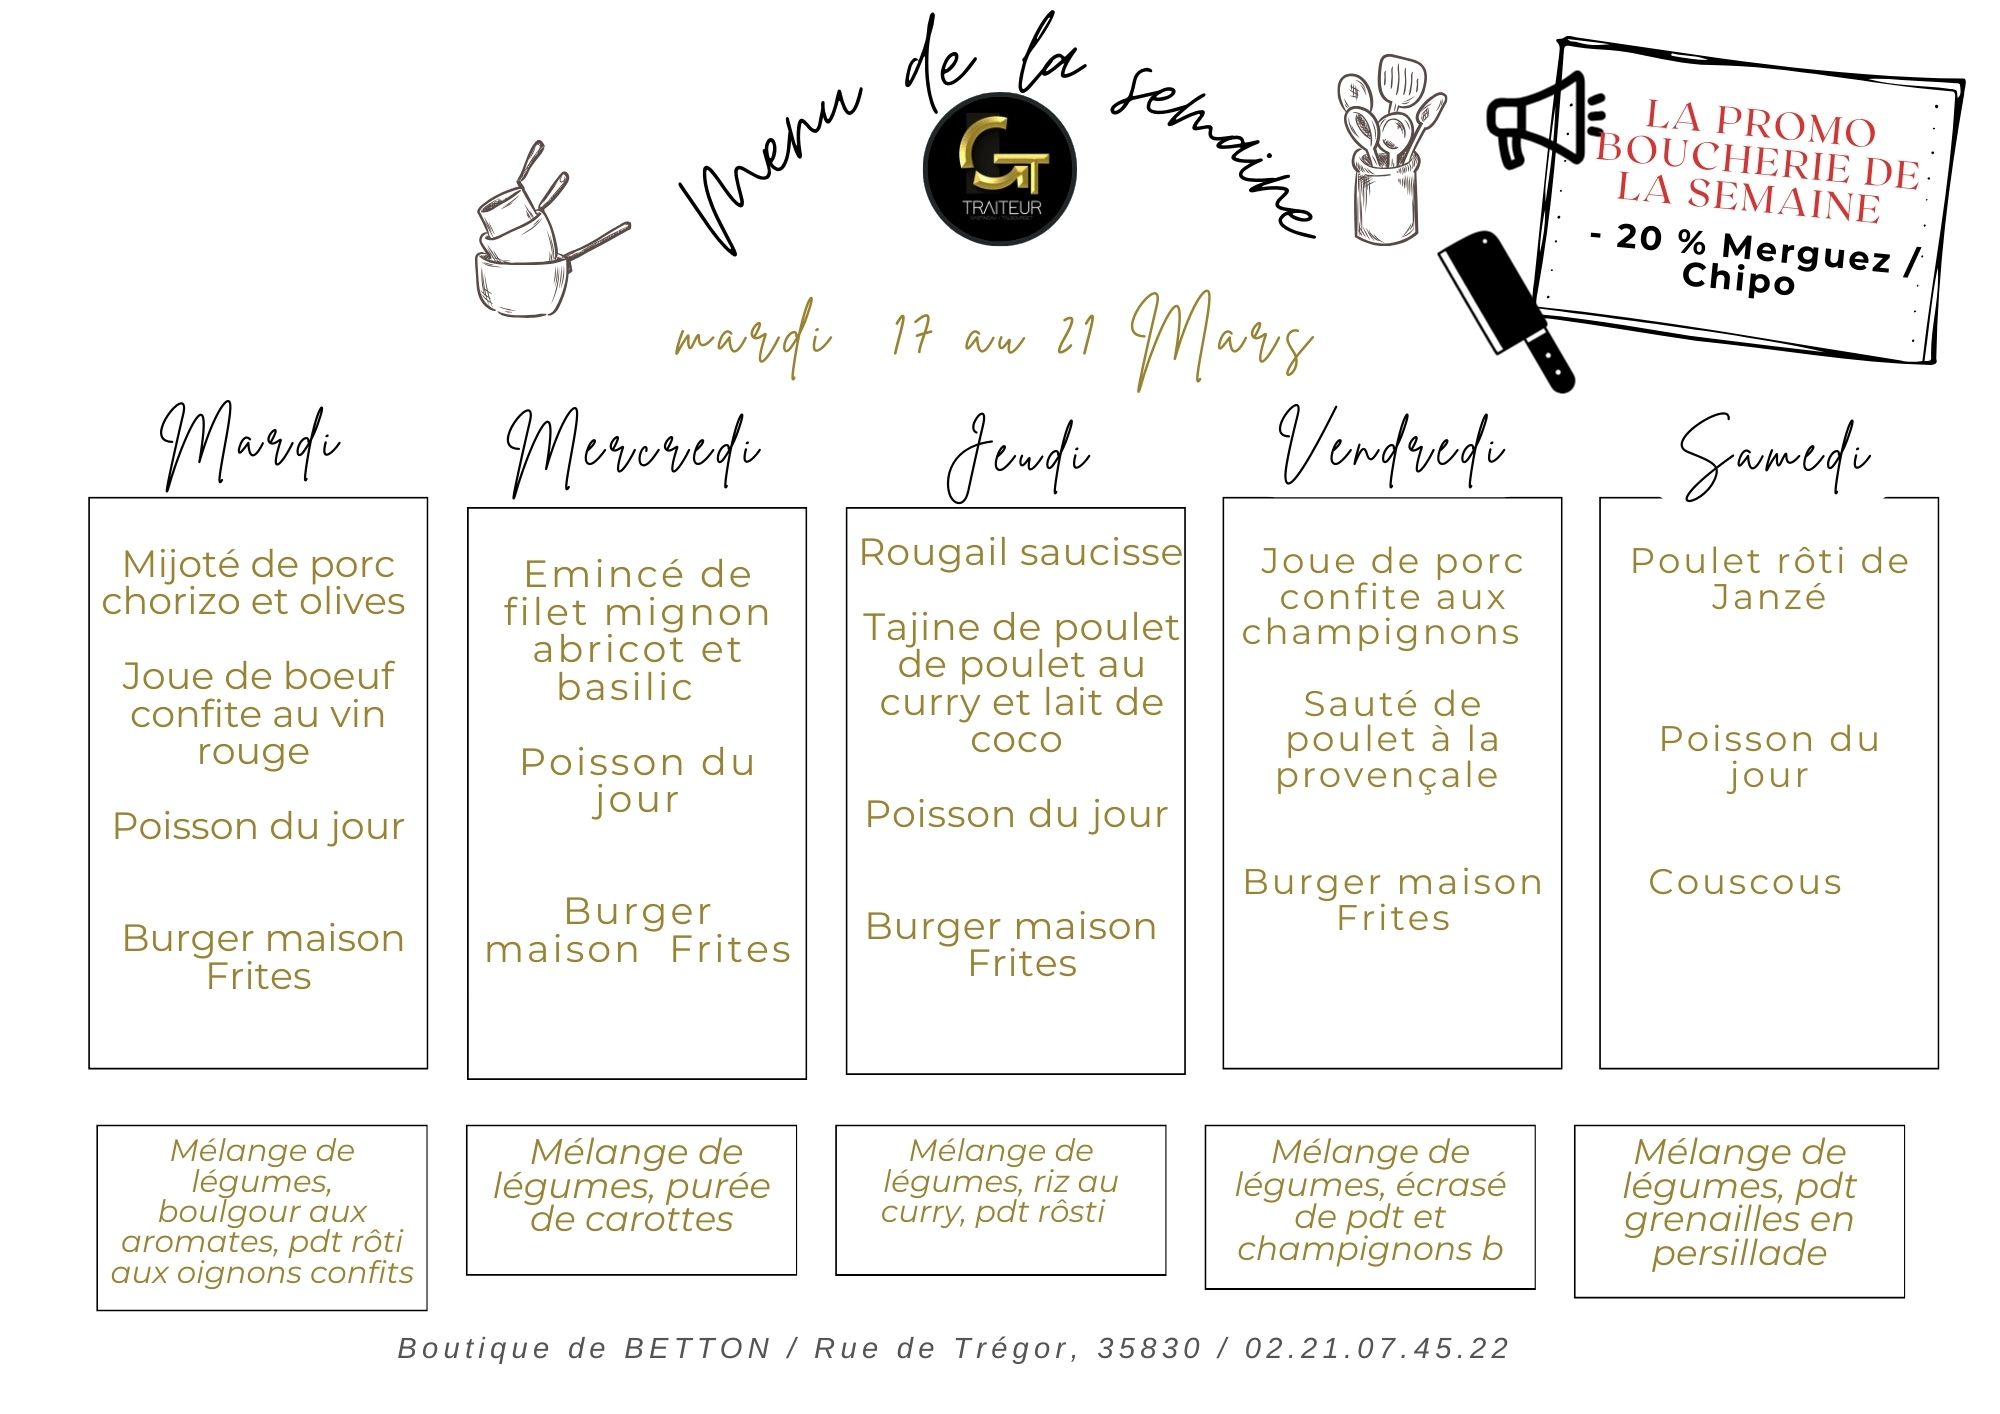 Menu de la semaine
GT
TRAITEUR
LA PROMO
BOUCHERIE DE
LA SEMAINE
- 20 % Merguez /
Chipo
mardi 17 au 21 Mars
Mardi
Mijoté de porc
chorizo et olives
Joue de boeuf
confite au vin
rouge
Poisson du jour
Burger maison
Frites
Mélange de
légumes,
boulgour aux
aromates, pdt rôti
aux oignons confits
Mercredi
Emincé de
filet mignon
abricot et
basilic
Poisson du
jour
Burger
maison Frites
Mélange de
légumes, purée
de carottes
Jeudi
Rougail saucisse
Tajine de poulet
de poulet au
curry et lait de
coco
Poisson du jour
Burger maison
Frites
Mélange de
légumes, riz au
curry, pdt rôsti
Vendredi
Joue de porc
confite aux
champignons
Sauté de
poulet à la
provençale
Burger maison
Frites
Mélange de
légumes, écrasé
de pdt et
champignons b
Samedi
Poulet rôti de
Janzé
Poisson du
jour
Couscous
Mélange de
légumes, pdt
grenailles en
persillade
Boutique de BETTON / Rue de Trégor, 35830 / 02.21.07.45.22